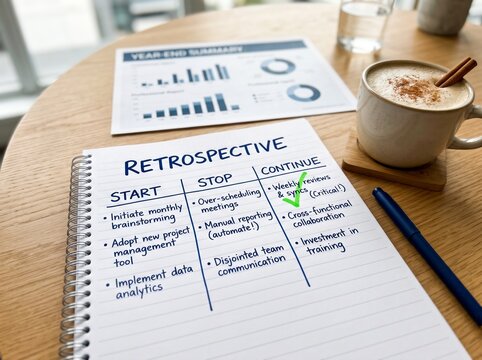 YEAR-END SUMMARY
RETROSPECTIVE
START
• Initiate monthly
brainstorming
• Adopt new project
management
tool
• Implement data
analytics
STOP
• Over-scheduling
meetings
• Manual reporting
(automate!)
• Disjointed team
communication
CONTINUE
• Weekly reviews
& syncs (Critical!)
• Cross-functional
collaboration
• Investment in
training